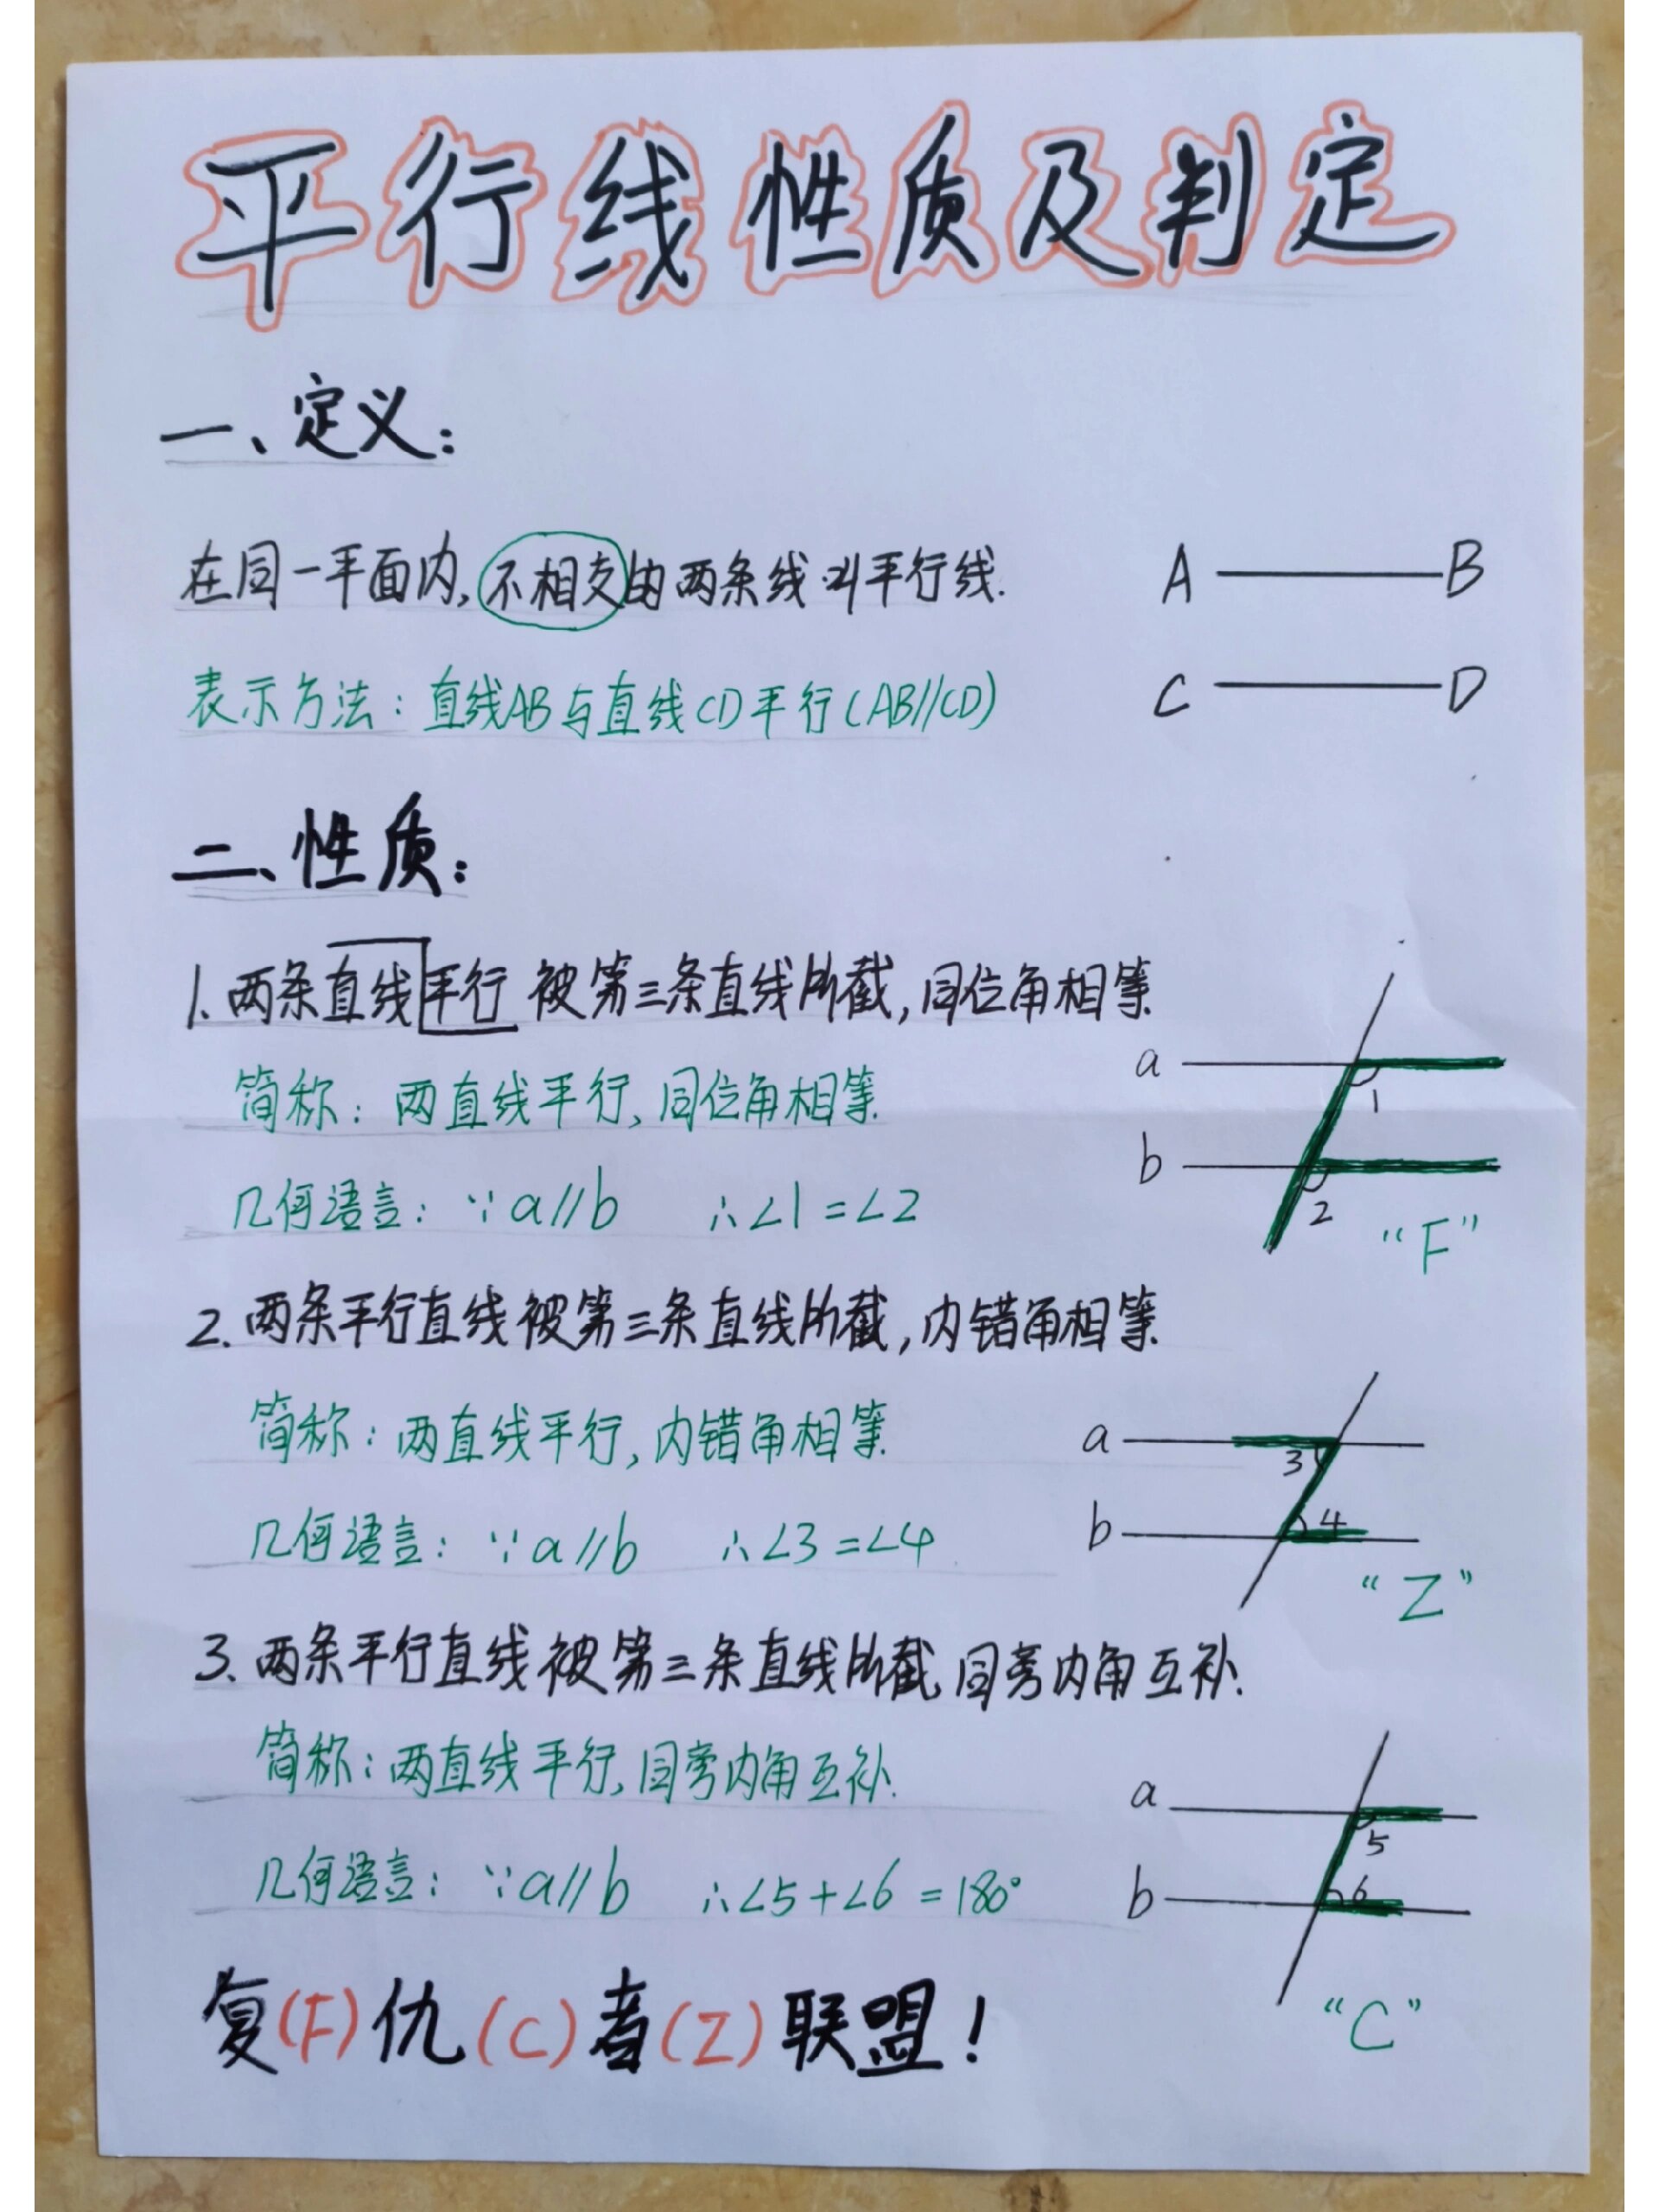 平行线性质及判定
一、定义：
在同一平面内,不相交的两条线叫平行线.
A B
表示方法：直线AB与直线CD平行(AB//CD)
C D
二、性质：
1.两条直线平行 被第三条直线所截,同位角相等.
简称：两直线平行,同位角相等.
a
1
b
2
几何语言：∵a//b ∴∠1=∠2
“F”
2.两条平行直线被第三条直线所截,内错角相等.
简称：两直线平行,内错角相等.
a
3
几何语言：∵a//b ∴∠3=∠4
b
4
“Z”
3.两条平行直线被第三条直线所截,同旁内角互补.
简称：两直线平行,同旁内角互补.
a
5
几何语言：∵a//b ∴∠5+∠6=180°
b
6
复(F)仇(C)者(Z)联盟！
“C”